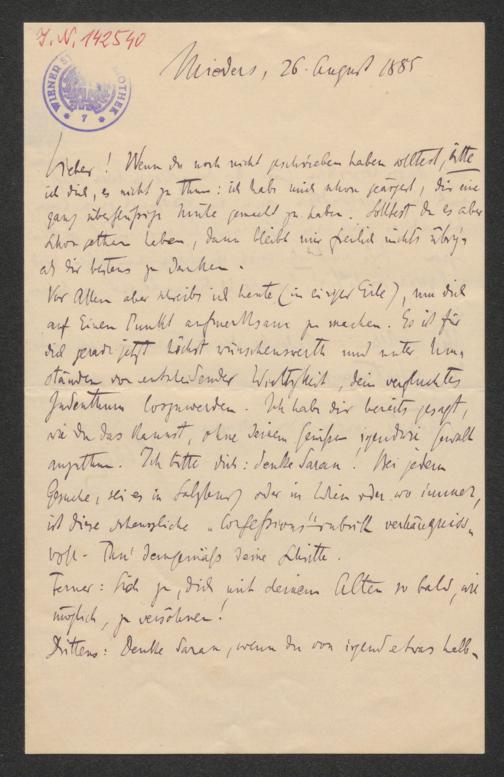 J. N. 142540
WIENER ST OTHEK
7
Mieders, 26. August 1885
Lieber! Wenn du noch nicht geschrieben haben solltest, bitte
ich dich, es nicht zu thun: ich habe mich schon geärgert, dir eine
ganz überflüssige Mühe gemacht zu haben. Solltest du es aber
schon gethan haben, dann bleibt mir freilich nichts übrig,
als dir bestens zu danken.
Vor Allem aber schreibe ich heute (in einiger Eile), um dich
auf Einen Punkt aufmerksam zu machen. Es ist für
dich gerade jetzt höchst wünschenswerth und unter Um-
ständen von entscheidender Wichtigkeit, dein verfluchtes
Judenthum loszuwerden. Ich habe dir bereits gesagt,
wie du das kannst, ohne deinem Gewissen irgendwie Gewalt
anzuthun. Ich bitte dich: denke daran! Bei jedem
Gesuche, sei es in Salzburg oder in Wien oder wo immer,
ist diese scheussliche „Confessions"-rubrik verhängniss-
voll. Thu' demgemäss deine Schritte.
Ferner: Sieh zu, dich mit deinem Alten so bald, wie
möglich, zu versöhnen!
Drittens: Denke daran, wenn du von irgend etwas halb-